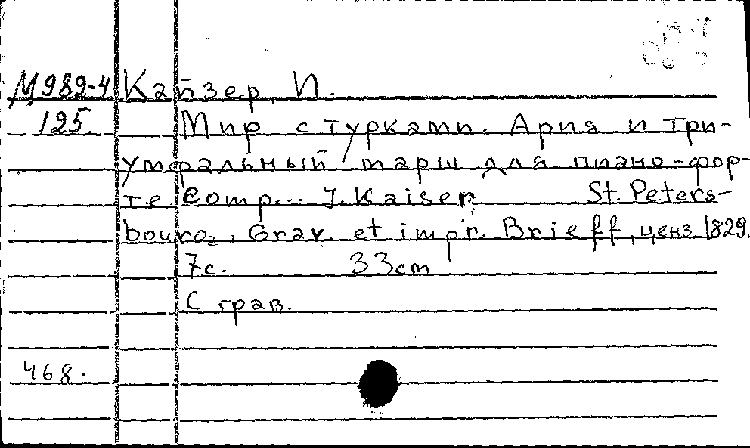 М 989-4 Кайзер, И.
125. Мир с турками. Ария и три-
умфальный марш для пиано-фор-
те. Comp... J. Kaiser St. Peters-
bourg, Grav. et impr. Brieff, ценз. 1829.
7 с. 33 cm
С грав.
468.